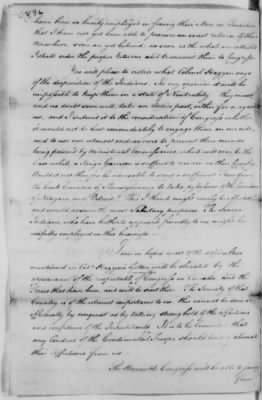 have been so busily employed in fixing their Men in Quarters
that I have not yet been able to procure an exact return of their
Numbers, soon as get behind so soon as the whole are collected
I shall order the proper returns and transmit them to Congress.
You will please to notice what Colonel Hazen says
of the disposition of the Indians. In my opinion it will be
impossible to keep them in a state of Neutrality. They must
and no doubt soon will take an active part, either for or against
us, and I submit it to the consideration of Congress whether
it would not be best immediately to engage them on our side
and to use our utmost endeavours to prevent their minds
being poisoned by Ministerial Emissaries, which will ever be the
Case while a King's Garrison is suffered to remain in their Country.
Would it not therefore be adviseable to send a sufficient Force from
the back Counties of Pennsylvania to take possession of the Garrisons
of Niagara and Detroit? This I think might easily be effected
and would answer the most Salutary purposes. The Seneca
Indians, who have hitherto appeared friendly to us might be
usefully employed in this business.
I am in hopes most of the difficulties
mentioned in Colo. Hazen's Letter will be obviated by the
appearance of the respectable Committee of Congress in Canada and the
Forces that have been, and will be sent there. The Security of that
Country is of the utmost importance to us. This cannot be done so
effectually by conquest as by taking strong hold of the affections
and confidence of the Inhabitants. It is to be lamented that
any conduct of the Continental Troops should tend to alienate
their affections from us.
The Honourable Congress will be able to judge
from